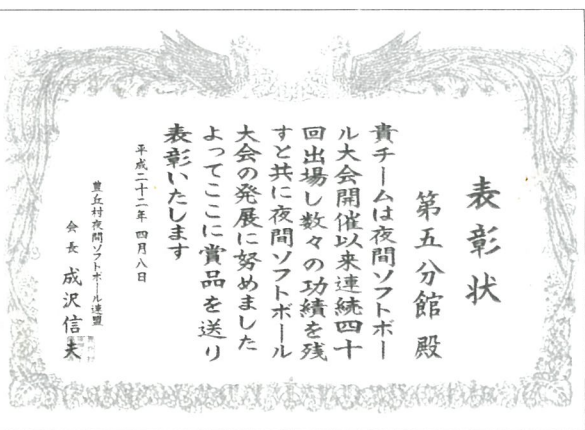 表彰状
第五分館 殿
貴チームは夜間ソフトボー
ル大会開催以来連続四十
回出場し数々の功績を残
すと共に夜間ソフトボール
大会の発展に努めました
よってここに賞品を送り
表彰いたします
平成二十二年 四月八日
豊丘村夜間ソフトボール連盟
会長 成沢信夫